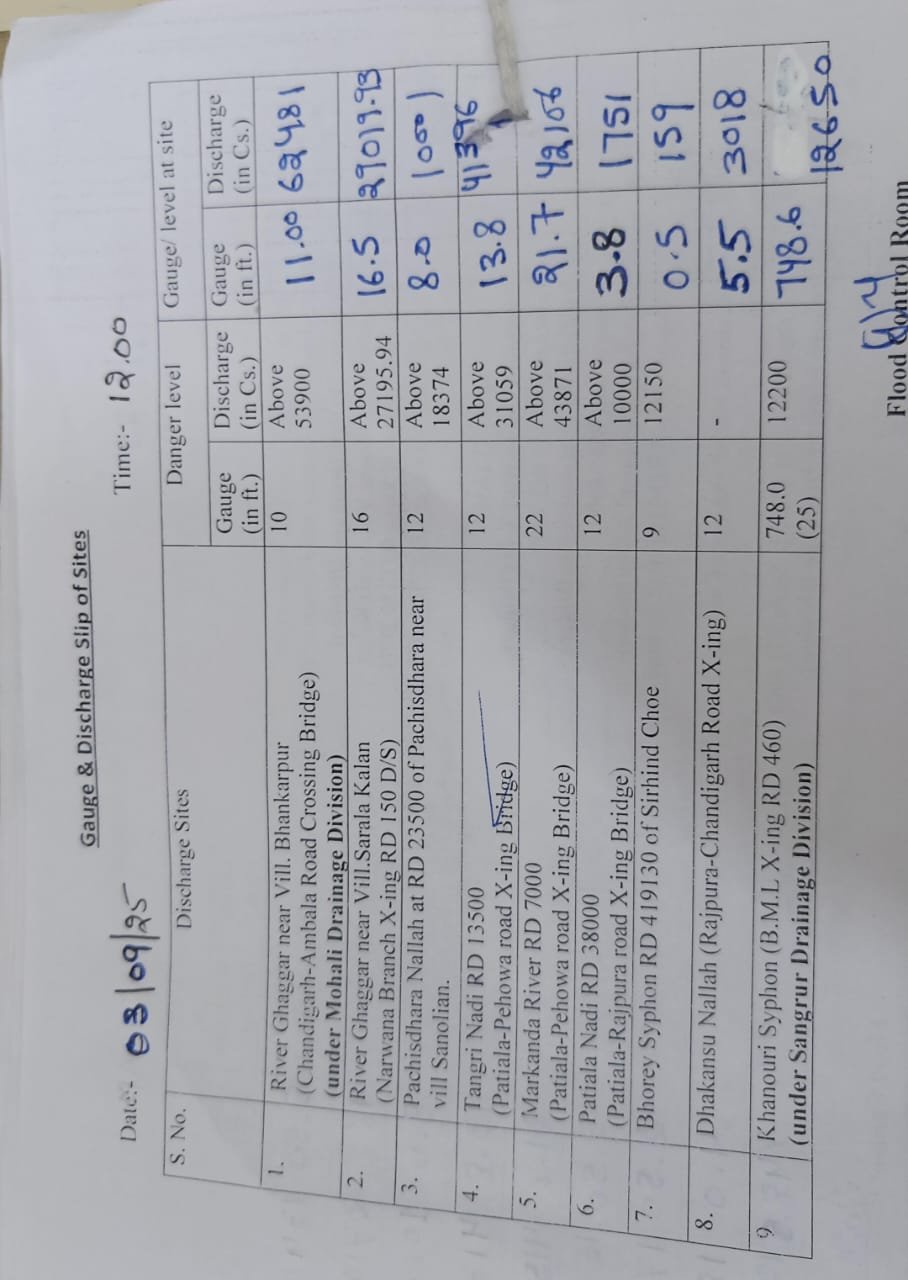 Gauge & Discharge Slip of Sites
Date:- 03/09/25 Time:- 12.00
S. No. Discharge Sites Danger level Gauge/ level at site
Gauge (in ft.) Discharge (in Cs.) Gauge (in ft.) Discharge (in Cs.)
1. River Ghaggar near Vill. Bhankarpur 10 Above 11.00 62481
(Chandigarh-Ambala Road Crossing Bridge) 53900
(under Mohali Drainage Division)
2. River Ghaggar near Vill.Sarala Kalan 16 Above 16.5 29019.93
(Narwana Branch X-ing RD 150 D/S) 27195.94
3. Pachisdhara Nallah at RD 23500 of Pachisdhara near 12 Above 8.0 10001
vill Sanolian. 18374
4. Tangri Nadi RD 13500 12 Above 13.8 41396
(Patiala-Pehowa road X-ing Bridge) 31059
5. Markanda River RD 7000 22 Above 21.7 42106
(Patiala-Pehowa road X-ing Bridge) 43871
6. Patiala Nadi RD 38000 12 Above 3.8 1751
(Patiala-Rajpura road X-ing Bridge) 10000
7. Bhorey Syphon RD 419130 of Sirhind Choe 9 12150 0.5 159
8. Dhakansu Nallah (Rajpura-Chandigarh Road X-ing) 12 - 5.5 3018
9. Khanouri Syphon (B.M.L X-ing RD 460) 748.0 12200 748.6 12650
(under Sangrur Drainage Division) (25)
Flood Control Room